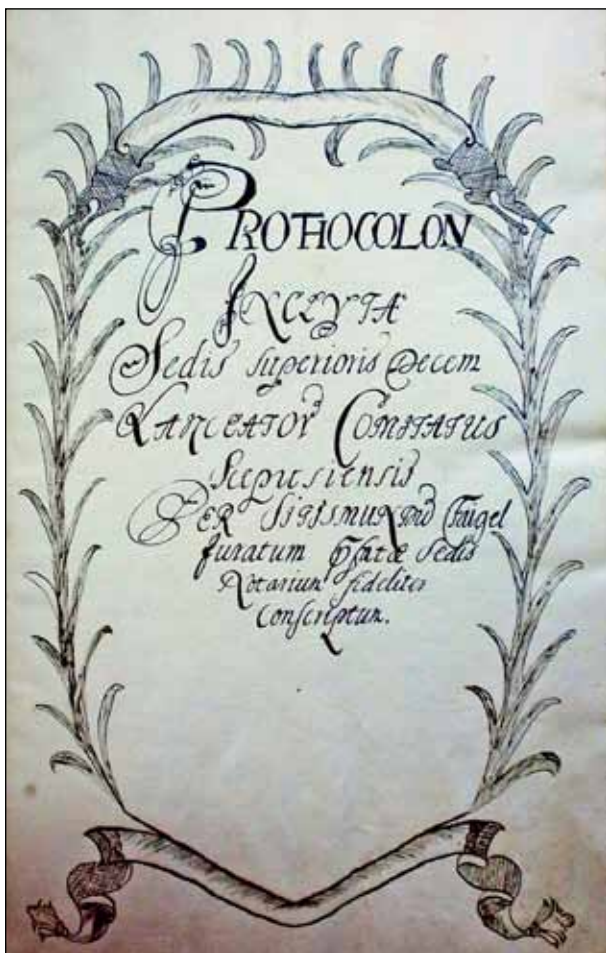 PROTHOCOLON
INCLYTÆ
Sedis superioris Decem
LANCEATOR COMITATUS
Scepusiensis
PER SIGISMUNDŪ
Juratum sedis
Notarium fideliter
Conscriptum.